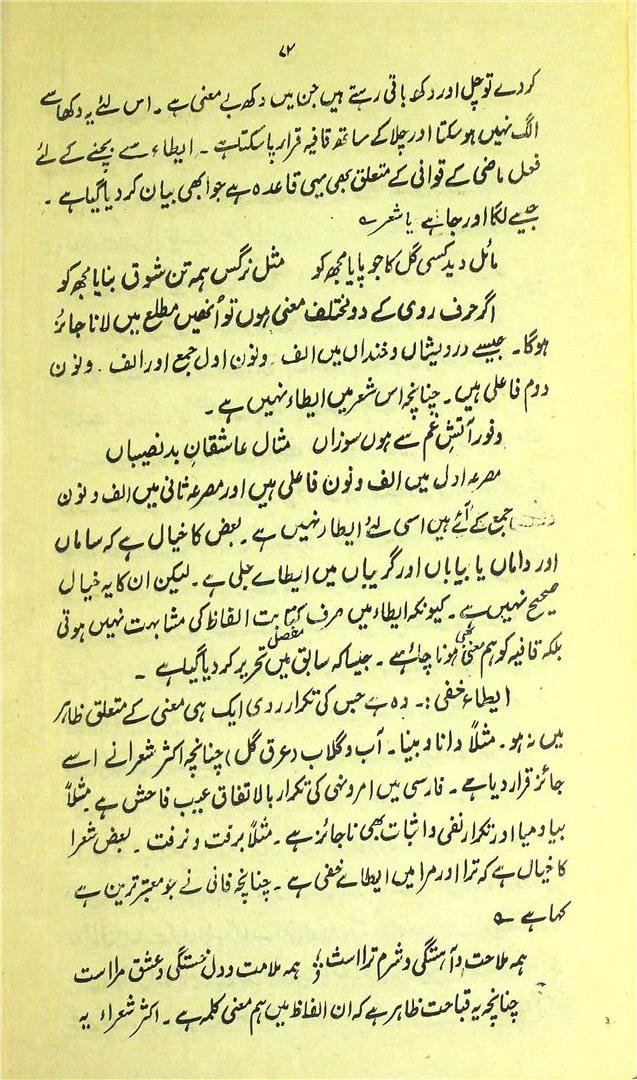 ۷۲
کر دے تو چل اور دکھ باقی رہتے ہیں جن میں دکھ بے معنی ہے۔ اس لئے یہ دکھا سے
الگ نہیں ہو سکتا اور چلا کے ساتھ قافیہ قرار پا سکتا ہے۔ ایطاء سے بچنے کے لئے
فعل ماضی کے قوافی کے متعلق بھی یہی قاعدہ ہے جو ابھی بیان کر دیا گیا ہے۔
جیسے لگا اور جا ہے یا شعر ؎
مائل دید کسی گل کا جو پایا مجھ کو مثل نرگس ہمہ تن شوق بنایا مجھ کو
اگر حرف روی کے دو مختلف معنی ہوں تو اُنھیں مطلع میں لانا جائز
ہوگا۔ جیسے درویشاں و خنداں میں الف۔ ونون اول جمع اور الف۔ ونون
دوم فاعلی ہیں۔ چنانچہ اس شعر میں ایطاء نہیں ہے۔
وفور آتش غم سے ہوں سوزاں مثال عاشقانِ بد نصیباں
مصرعہ اول میں الف ونون فاعلی ہیں اور مصرعہ ثانی میں الف و نون
جمع کے آئے ہیں اسی لئے ایطار نہیں ہے۔ بعض کا خیال ہے کہ ساماں
اور داماں یا بیاباں اور گریباں میں ایطاے جلی ہے۔ لیکن ان کا یہ خیال
صحیح نہیں ہے۔ کیونکہ ایطاء میں صرف کتابت الفاظ کی مشابہت نہیں ہوتی
بلکہ قافیہ کو ہم معنی بھی ہونا چاہئے۔ جیسا کہ سابق میں مفصل تحریر کر دیا گیا ہے۔
ایطاء خفی :۔ وہ ہے جس کی تکرار روی ایک ہی معنی کے متعلق ظاہر
میں نہ ہو۔ مثلاً دانا و بینا۔ آب و گلاب و عرق گل) چنانچہ اکثر شعرا نے اسے
جائز قرار دیا ہے۔ فارسی میں امر و نہی کی تکرار بالاتفاق عیب فاحش ہے مثلاً
بیا و میا اور تکرار نفی و اثبات بھی ناجائز ہے۔ مثلاً برفت و نرفت۔ بعض شعرا
کا خیال ہے کہ ترا اور مرا میں ایطاے خفی ہے۔ چنانچہ فانی نے جو معتبر ترین ہے
کہا ہے ؎
ہمہ ملاحت و آہستگی و شرم تراست ہمہ ملامت و دل خستگی و عشق مراست
چنانچہ یہ قباحت ظاہر ہے کہ ان الفاظ میں ہم معنی کلمہ ہے۔ اکثر شعراء یہ